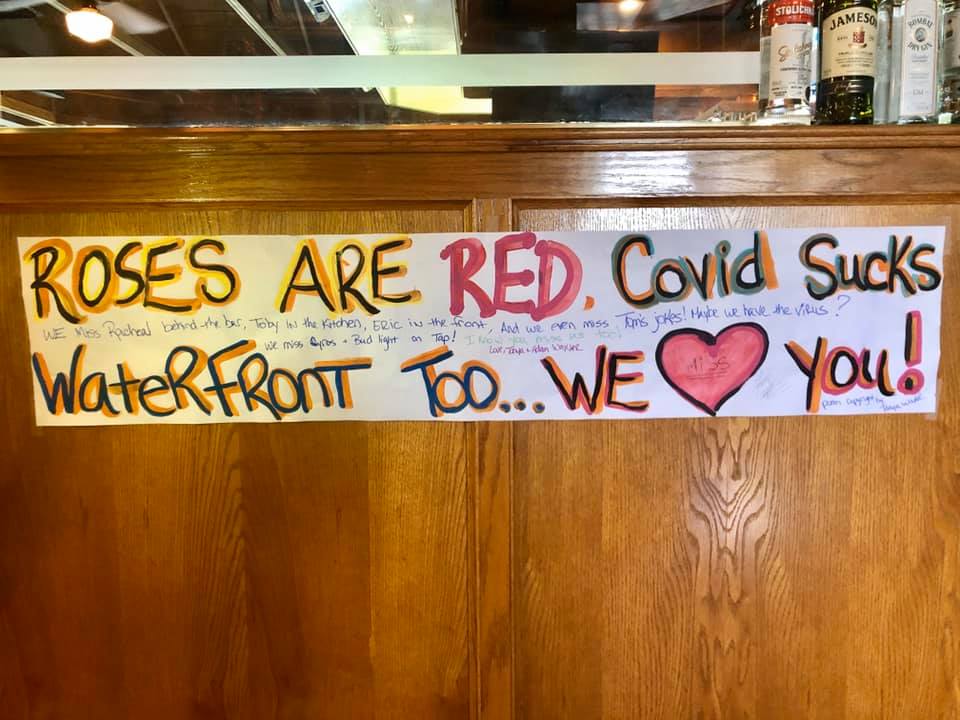 STOLICHN
JAMESON
BOMBAY
DRY GIN
ROSES ARE RED, Covid Sucks
WE Miss Racheal behind the bar, Toby in the kitchen, ERIC in the front, And we even miss Tom's jokes! Maybe we have the virus?
we miss Gyros + Bud light on Tap! I know you miss us too!
Love, Tanya + Adam
WateRFRonT Too... WE MiSS You!
poem copyright by